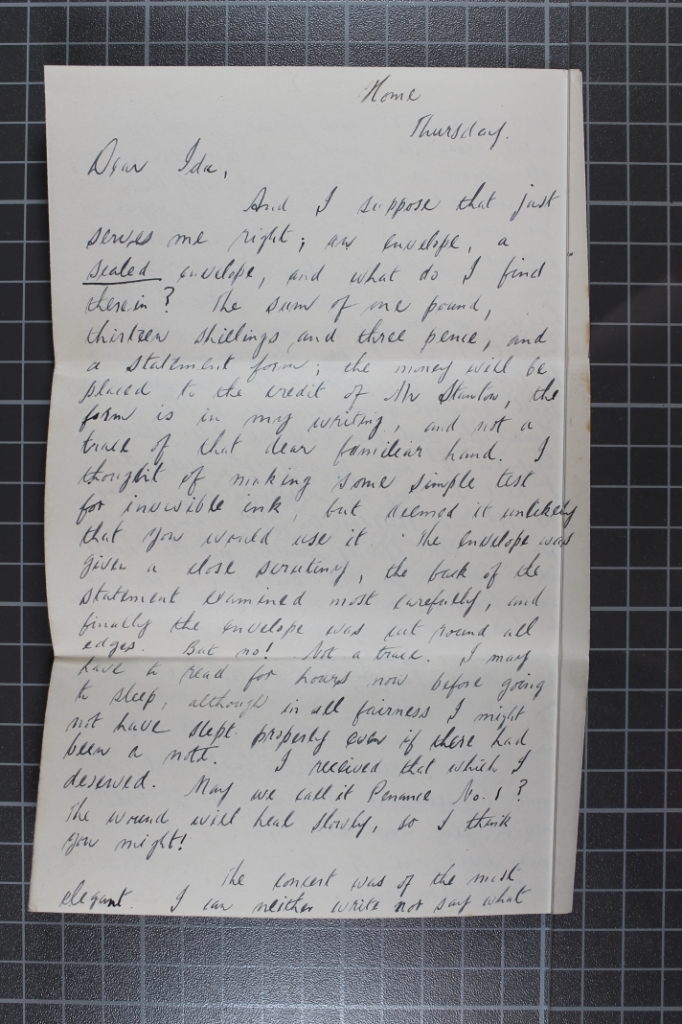 Home
Thursday.
Dear Ida,
And I suppose that just
serves me right; an envelope, a
sealed envelope, and what do I find
therein? The sum of one pound,
thirteen shillings and three pence, and
a statement form; the money will be
placed to the credit of Mr Stanton, the
form is in my writing, and not a
trace of that dear familiar hand. I
thought of making some simple test
for invisible ink, but deemed it unlikely
that you would use it. The envelope was
given a close scrutiny, the back of the
statement examined most carefully, and
finally the envelope was cut round all
edges. But no! Not a trace. I may
have to read for hours now before going
to sleep, although in all fairness I might
not have slept properly even if there had
been a note. I received that which I
deserved. May we call it Penance No. 1?
The wound will heal slowly, so I think
you might!
The concert was of the most
elegant. I can neither write nor say what